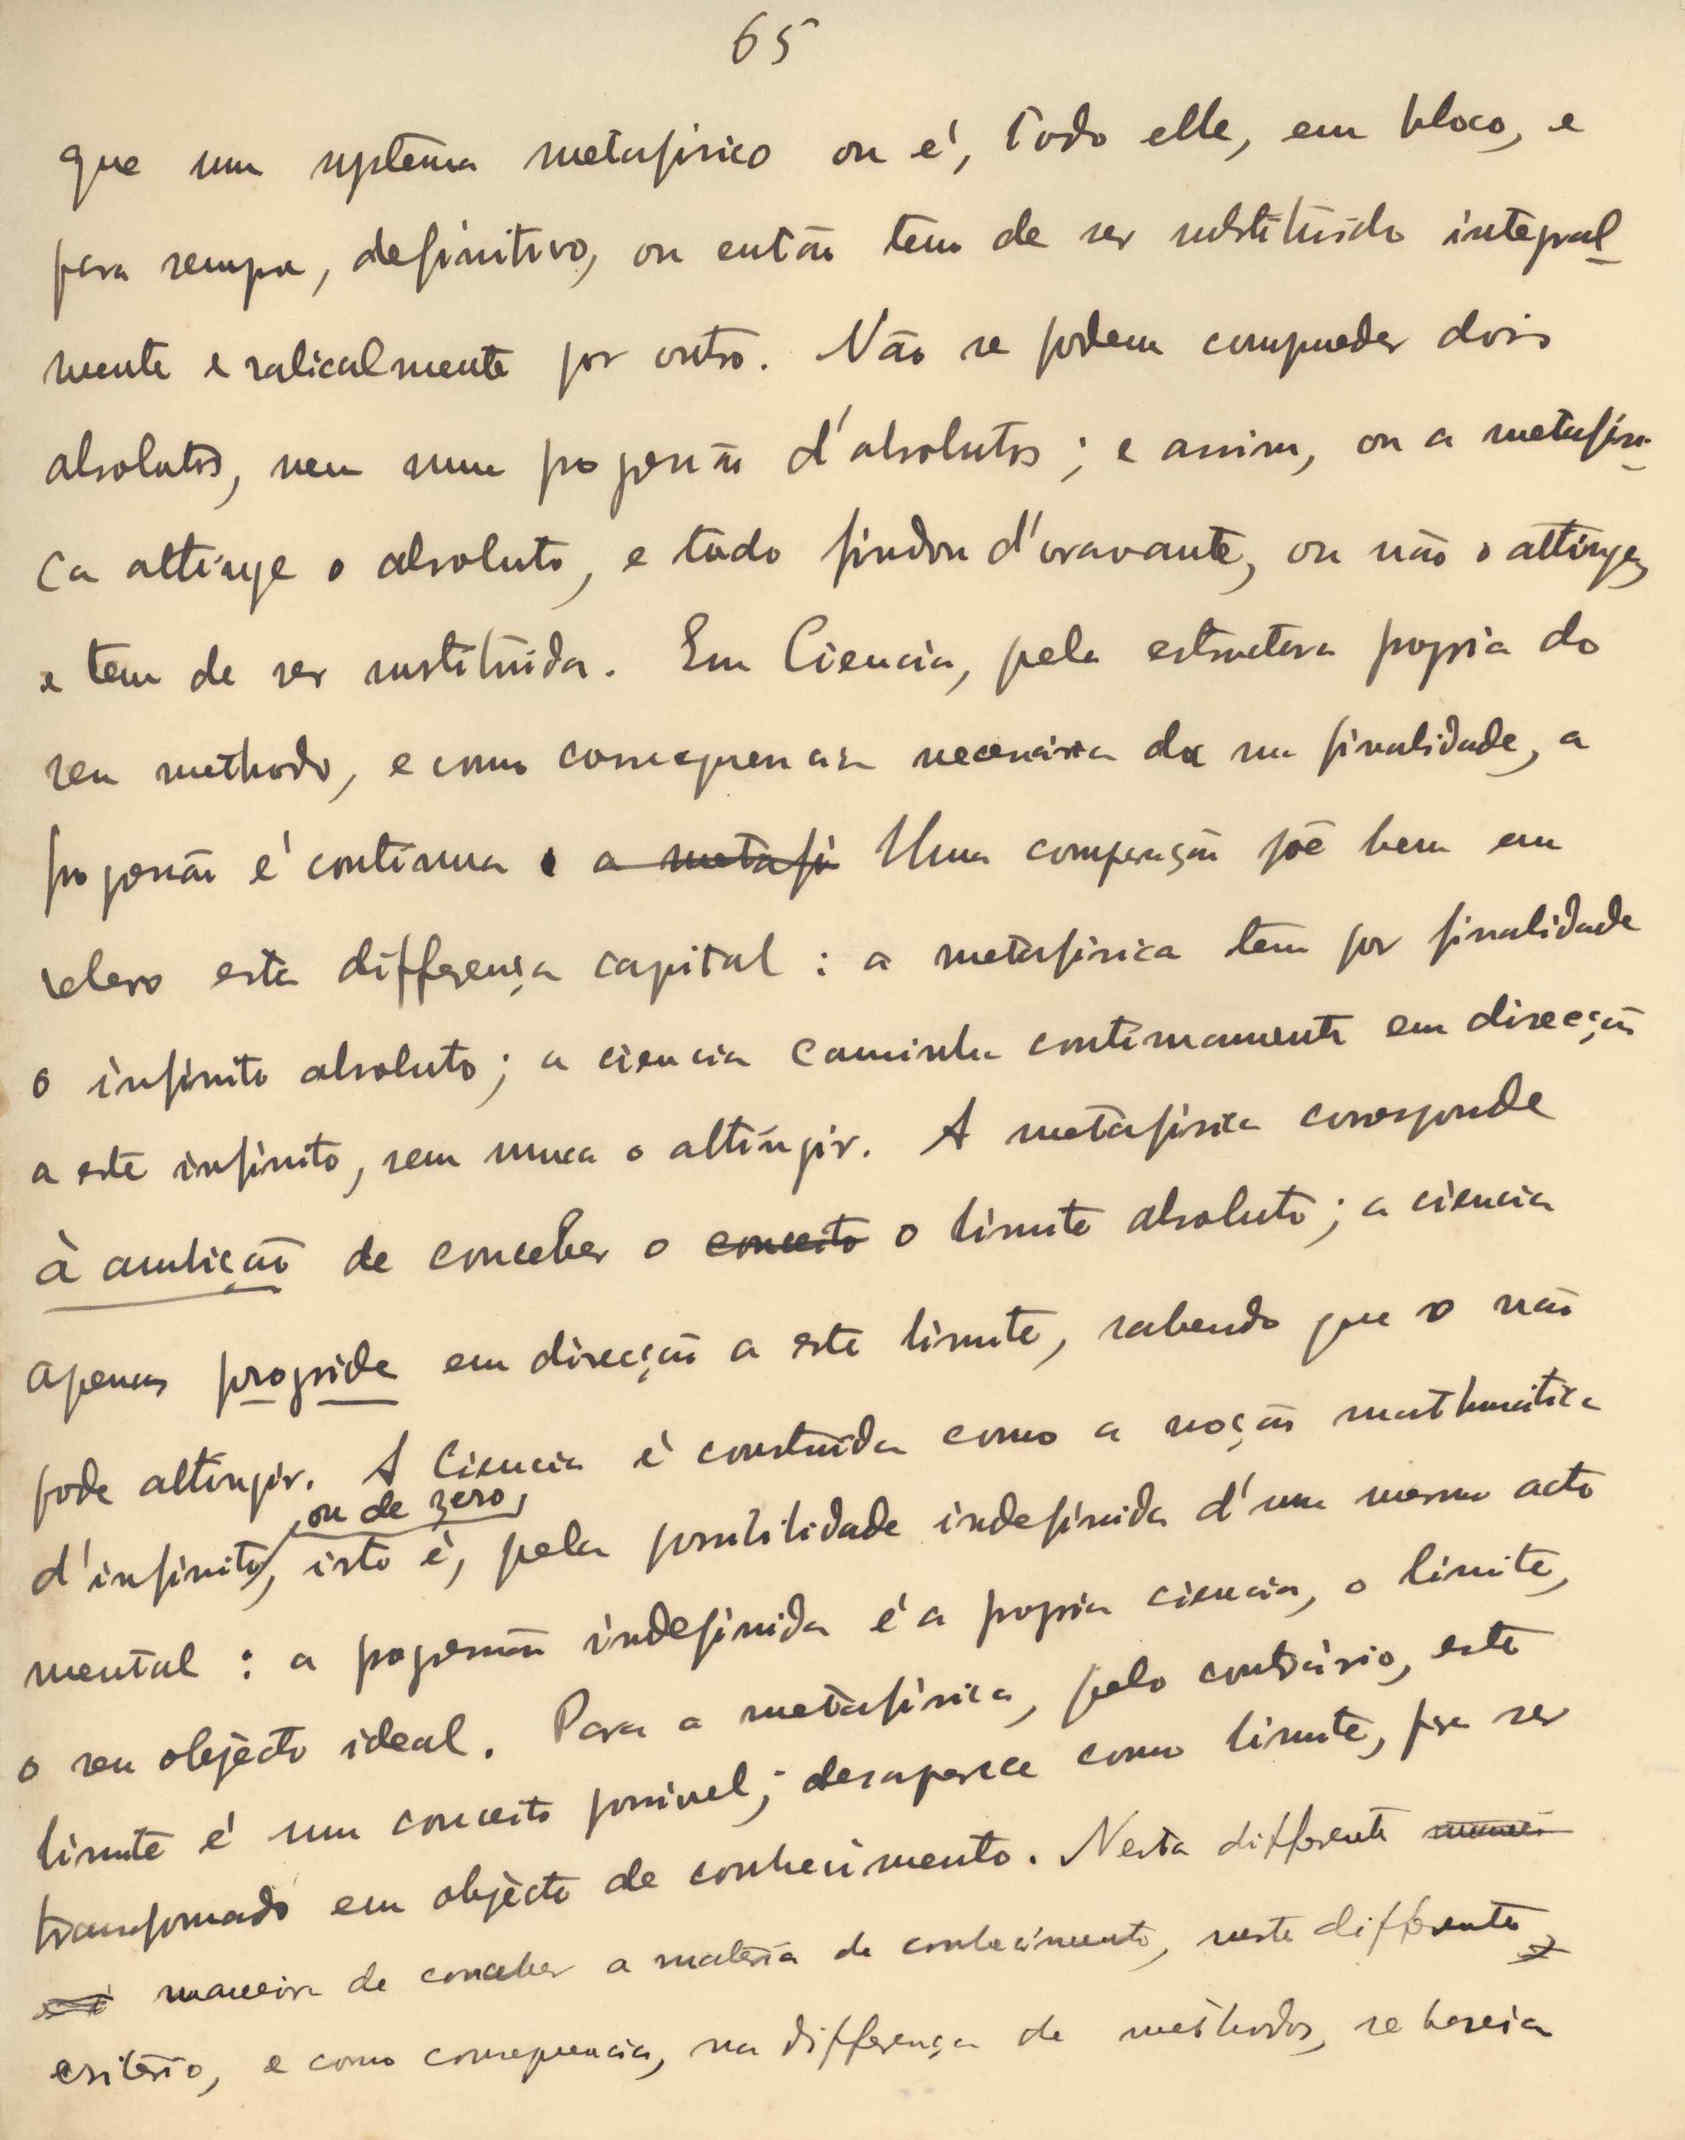 65
que um systema metafisico ou é, todo elle, em bloco, e
para sempre, definitivo, ou então tem de ser substituido integral-
mente e radicalmente por outro. Não se podem comprehender dois
absolutos, nem uma progressão d'absolutos; e assim, ou a metafisi-
ca attinge o absoluto, e tudo findou d'oravante, ou não o attinge,
e tem de ser substituida. Em Ciencia, pela estructura propria do
seu methodo, e como consequencia necessaria da sua finalidade, a
progressão é continua. a metafi Uma comparação põe bem em
relevo esta differença capital: a metafisica tem por finalidade
o infinito absoluto; a ciencia caminha continuamente em direcção
a este infinito, sem nunca o attingir. A metafisica corresponde
à ambição de conceber o conceito o limite absoluto; a ciencia
apenas progride em direcção a este limite, sabendo que o não
pode attingir. A Ciencia é construida como a noção mathematica
ou de zero,
d'infinito, isto é, pela possibilidade indefinida d'um mesmo acto
mental: a progressão indefinida é a propria ciencia, o limite,
o seu objecto ideal. Para a metafisica, pelo contrário, este
limite é um conceito possivel; desaparece como limite, para ser
transformado em objécto de conhecimento. Nesta differente
maneira de conceber a materia do conhecimento, neste differente
critério, e como consequencia, na differença de methodos, se baseia